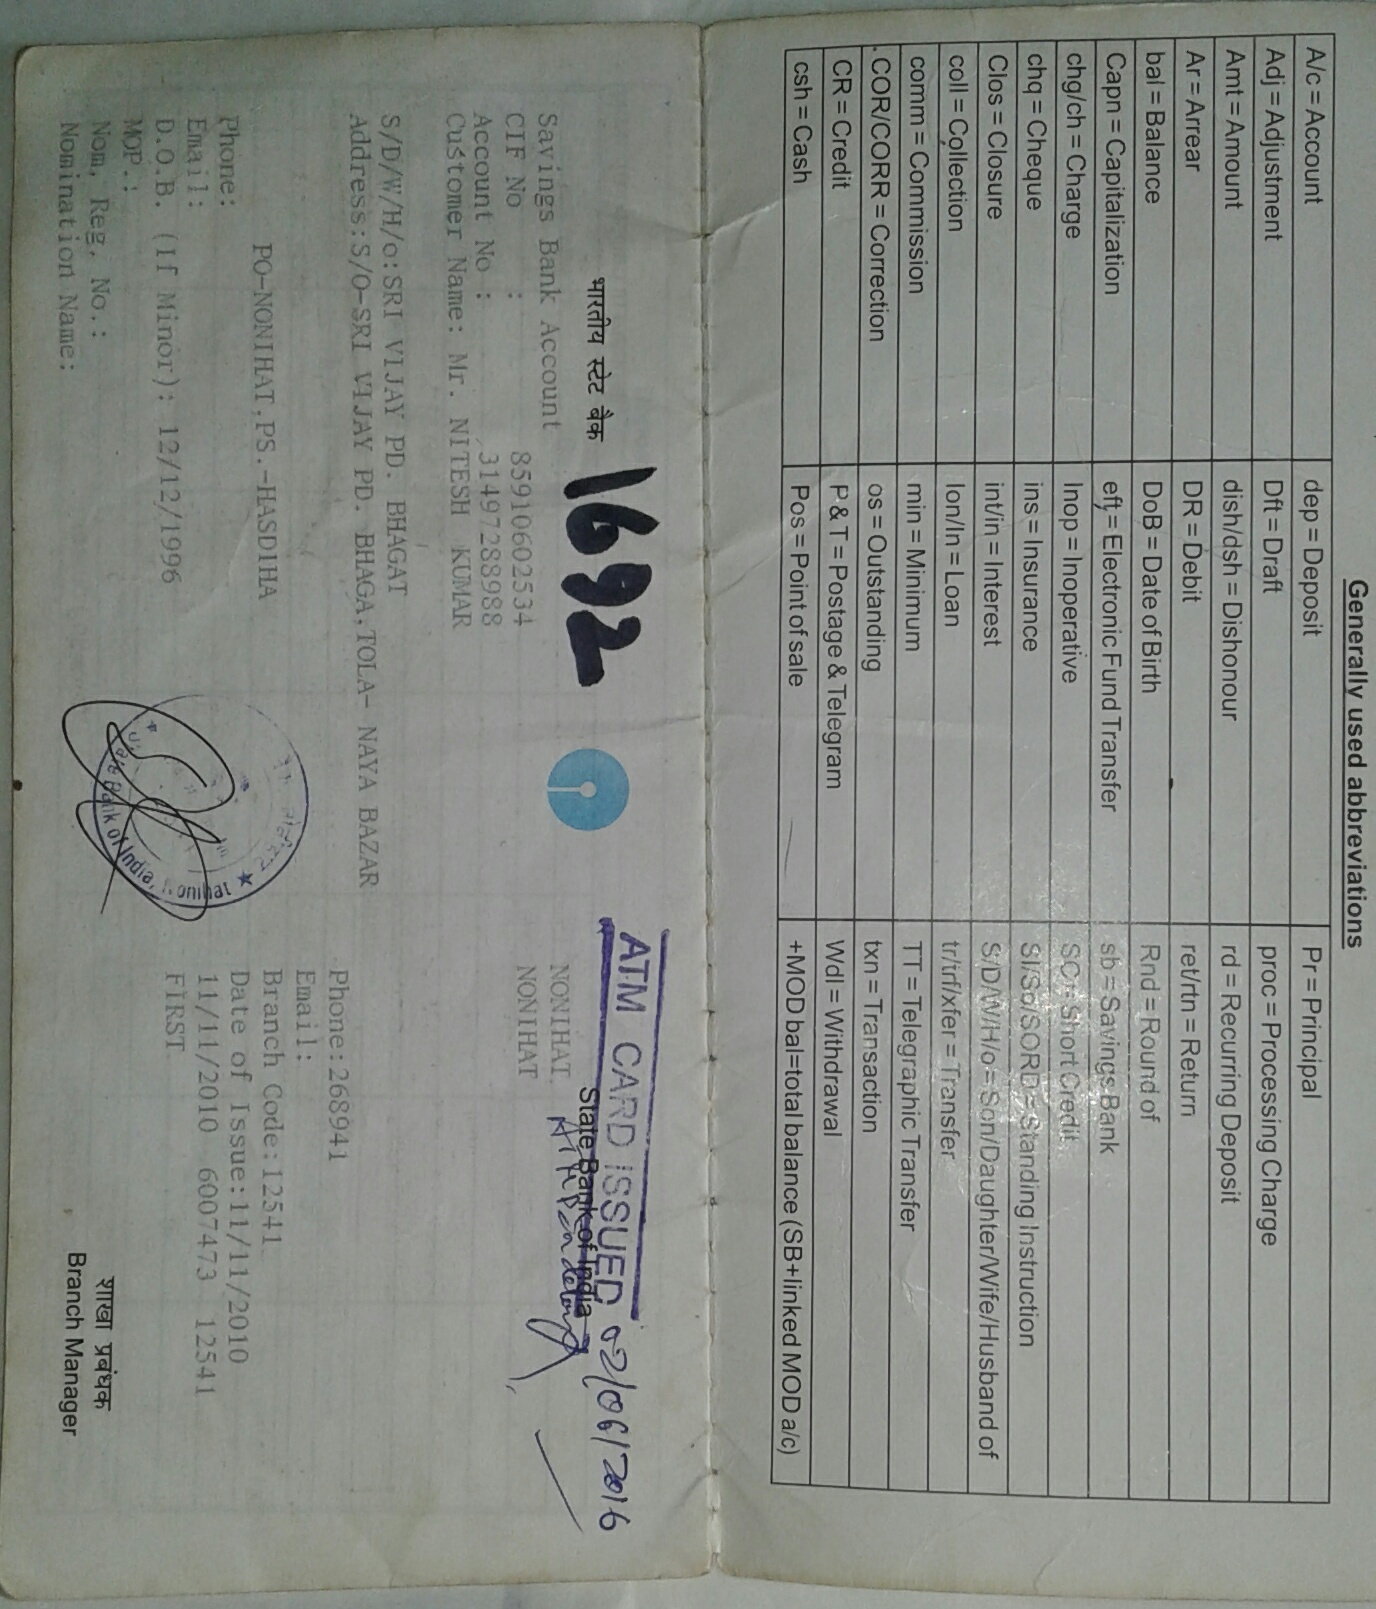 Generally used abbreviations
A/c = Account | dep = Deposit | Pr = Principal
Adj = Adjustment | Dft = Draft | proc = Processing Charge
Amt = Amount | dish/dsh = Dishonour | rd = Recurring Deposit
Ar = Arrear | DR = Debit | ret/rtn = Return
bal = Balance | DoB = Date of Birth | Rnd = Round of
Capn = Capitalization | eft = Electronic Fund Transfer | sb = Savings Bank
chg/ch = Charge | Inop = Inoperative | SC = Short Credit
chq = Cheque | ins = Insurance | SI/So/SORD = Standing Instruction
Clos = Closure | int/in = Interest | S/D/W/H/o = Son/Daughter/Wife/Husband of
coll = Collection | lon/ln = Loan | tr/trf/xfer = Transfer
comm = Commission | min = Minimum | TT = Telegraphic Transfer
COR/CORR = Correction | os = Outstanding | txn = Transaction
CR = Credit | P & T = Postage & Telegram | Wdl = Withdrawal
csh = Cash | Pos = Point of sale | +MOD bal=total balance (SB+linked MOD a/c)
ATM CARD ISSUED 02/06/2016
भारतीय स्टेट बैंक 1692 State Bank of India
Savings Bank Account NONIHAT
CIF No : 85910602534 NONIHAT
Account No : 31497288988
Customer Name: Mr. NITESH KUMAR
S/D/W/H/o:SRI VIJAY PD. BHAGAT
Address:S/O-SRI VIJAY PD. BHAGA,TOLA- NAYA BAZAR
Phone:268941
Email:
PO-NONIHAT,PS.-HASDIHA
Branch Code:12541
Phone:
Date of Issue:11/11/2010
Email:
11/11/2010 6007473 12541
D.O.B. (If Minor): 12/12/1996
FIRST
MOP.:
Nom. Reg. No.:
Nomination Name:
Bank of India,
शाखा प्रबंधक
Branch Manager